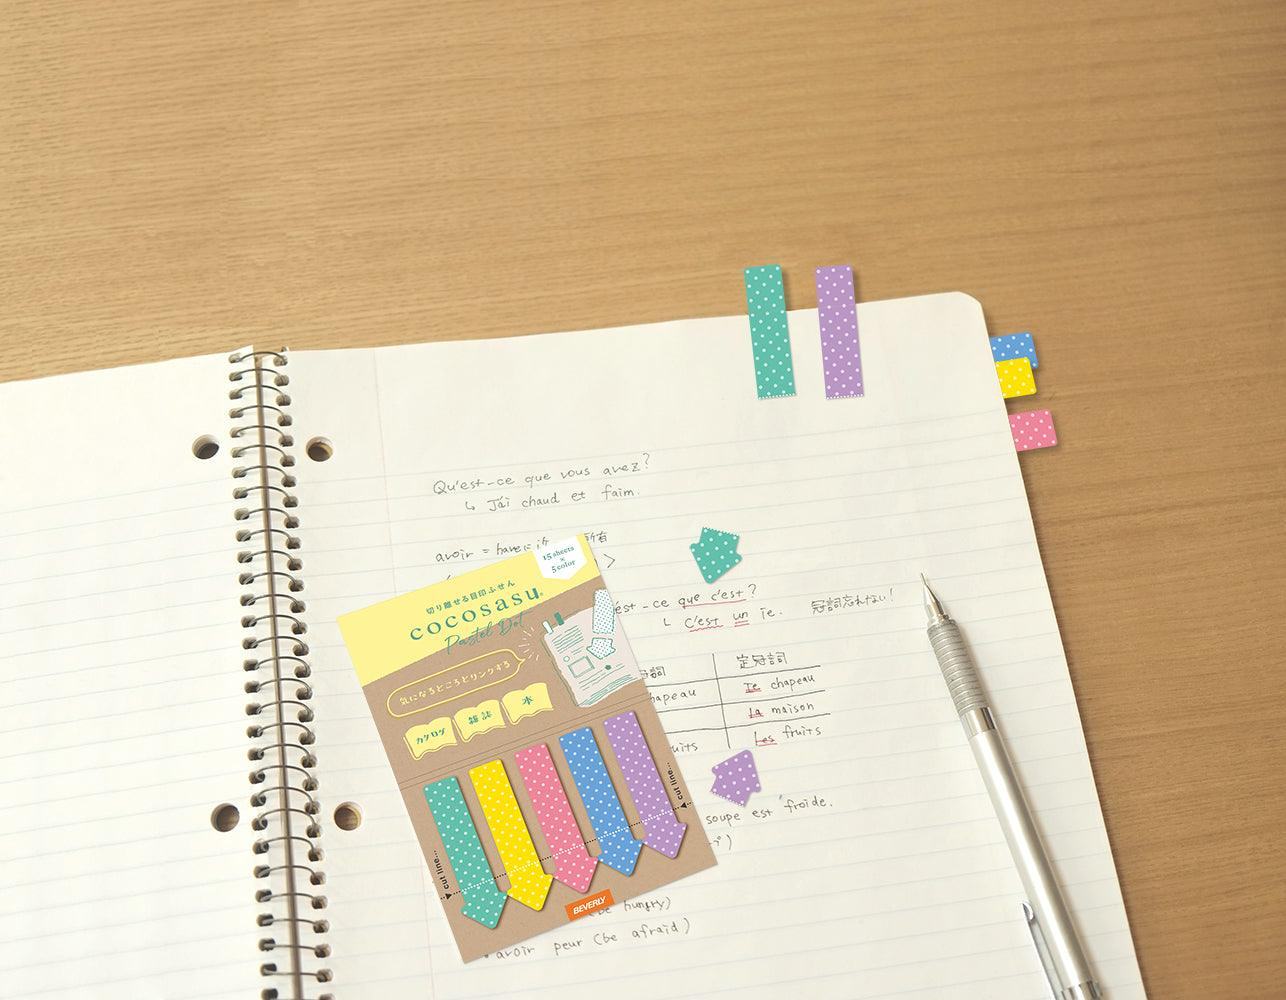 Qu'est-ce que vous avez?
↳ J'ai chaud et faim.
avoir = have に近い 所有
15 sheets
×
5 color
切り離せる目印ふせん
cocosasu
Pastel Dot
気になるところとリンクする
カタログ
雑誌
本
cut line...
cut line...
BEVERLY
est-ce que c'est?
C'est un
冠詞忘れない!
冠詞
定冠詞
chapeau
chapeau
la maison
uits
Les fruits
soupe est froide.
(be hungry)
avoir peur (be afraid)